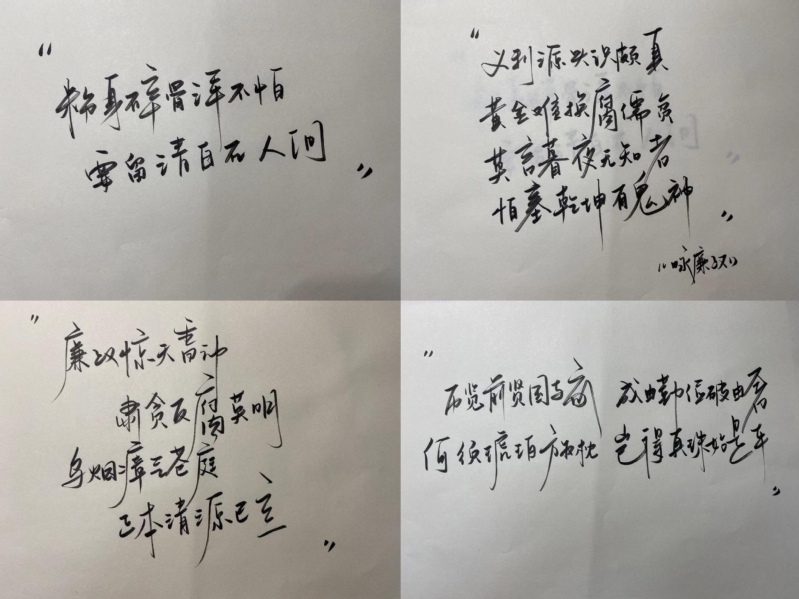 “
粉身碎骨浑不怕
要留清白在人间
”
义利源头识颇真
黄金难换腐儒贫
莫言暮夜无知者
怕塞乾坤有鬼神
”
《咏廉政》
“
廉政惊天雷动
肃贪反腐英明
乌烟瘴气苍庭
正本清源已立
”
“
历览前贤国与家 成由勤俭破由奢
何须琥珀方为枕 岂得真珠始是车
”